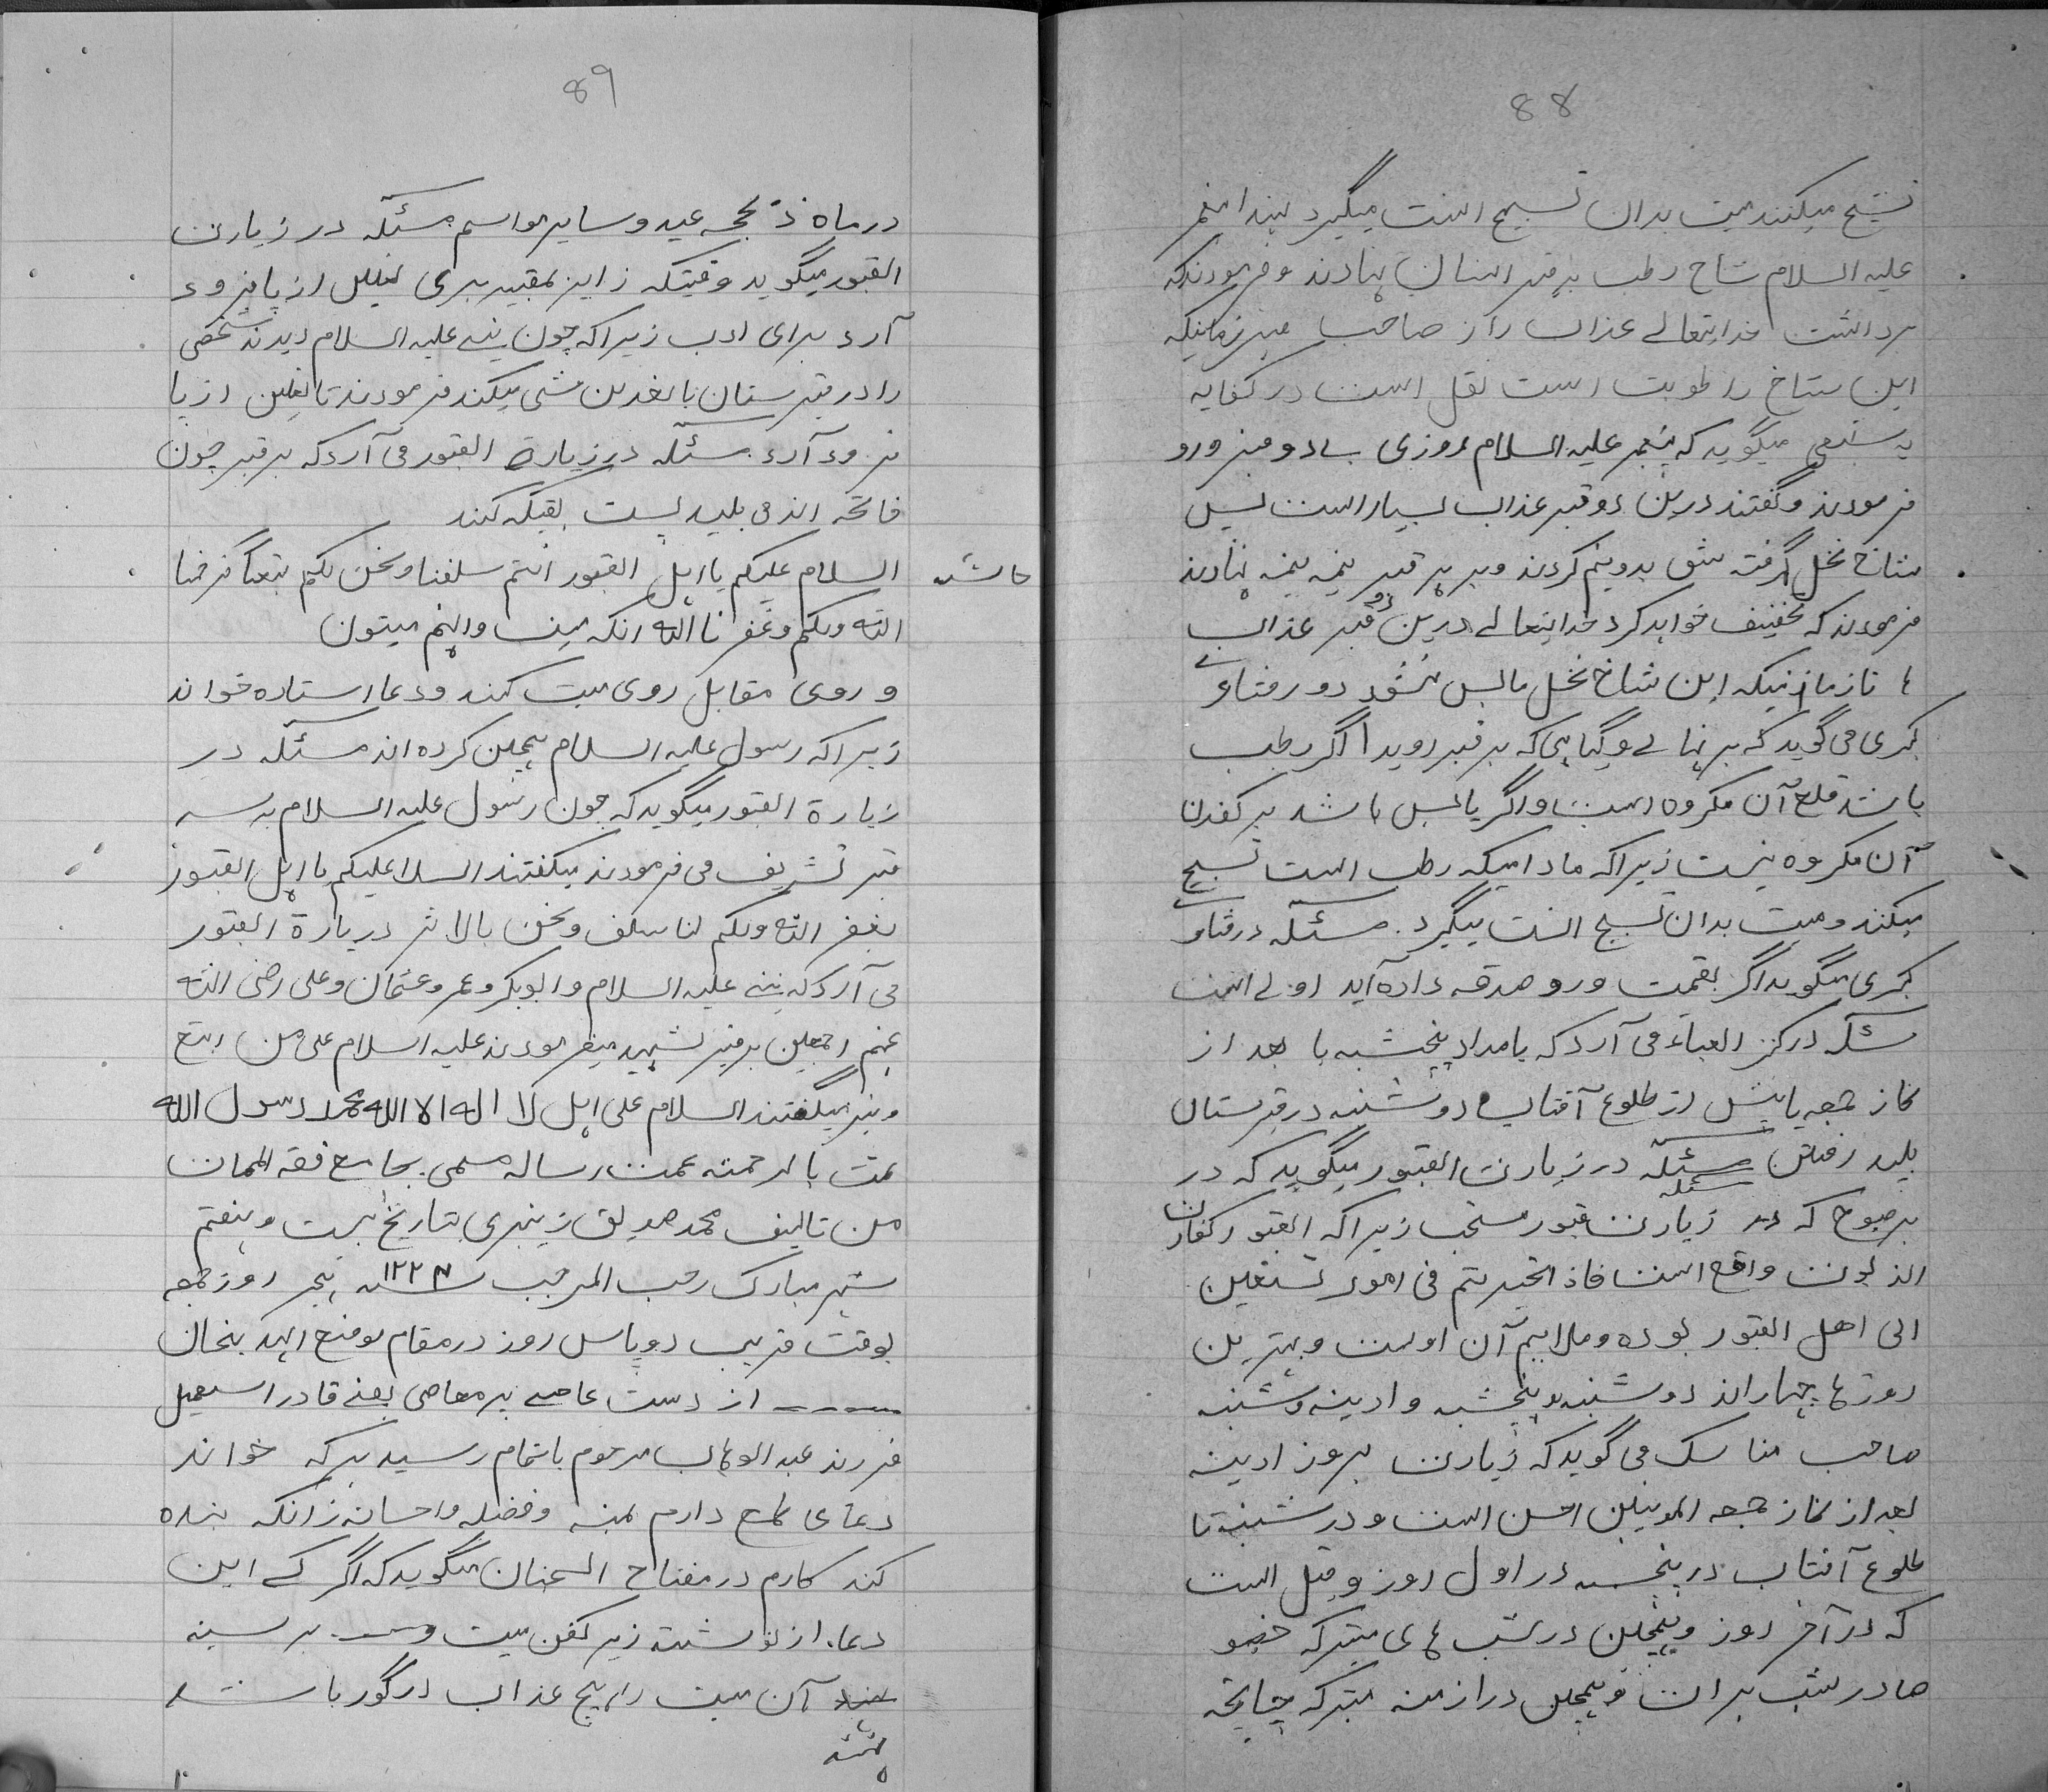 88
تسبیح میکنند میت بدان تسبیح انست میگیرد
علیه السلام شاخ رطب بر قبر انسان نهادند و فرمودند که
برداشت خدایتعالے عذاب را از صاحب قبر زمانیکه
این شاخ را طوبت است نقل است در کفایه
میگوید که پیغمبر علیه السلام روزی
فرمودند و گفتند درین دو قبر عذاب بسیار است پس
شاخ نخل گرفته شق بدونیم کردند و بر هر قبر نیمه نیمه نهادند
فرمودند که تخفیف خواهد کرد خدایتعالے درین دو قبر عذاب
تا زمانیکه این شاخ نخل یابس نشود در فتاوے
کبری می گوید که هر نهالے و گیاهی که بر قبر روید اگر رطب
باشد قلع آن مکروه است و اگر یابس باشد بر کندن
آن مکروه نیست زیرا که مادامیکه رطب است تسبیح
میکند و میت بدان تسبیح انست میگیرد. مسئله در فتاوے
کبری میگوید اگر بقیمت ورد صدقه داده آید اولے است
مسئله در کنز العباد می آرد که بامداد پنجشبه یا بعد از
نماز جمعه یا پیش از طلوع آفتاب دوشنبه در قبرستان
باید رفتن مسئله در زیارت القبور میگوید که در
مسئله
که در زیارت قبور مستحب زیرا که القبور کفارت
الذنوب واقع است فاذا تحیرتم فی امور تستعین
الی اهل القبور بوده و ملایم آن اوست و بهترین
روزها چهار اند دوشنبه و پنجشبه و ادینه و شنبه
صاحب مناسک می گوید که زیارت بروز ادینه
بعد از نماز جمعه احسن است و در شنبه تا
طلوع آفتاب در پنجشبه در اول روز و قبل است
که در آخر روز و همچنین در شب های متبرکه خصو
صا در شب برات و همچنین در ازمنه متبرکه چنانچه
89
در ماه ذلحجه عید و سایر مواسم مسئله در زیارت
القبور میگوید وقتیکه زایر بمقبره برسد نعلین از پا فرود
آرد برای ادب زیرا که چون نبے علیه السلام دیدند شخصی
را در قبرستان با نعلین مشی میکند فرمودند تا نعلین از پا
فرود آرد. مسئله در زیارة القبور می آرد که بر قبر چون
فاتحه اندمی باید پست بقبله کند
حاشیه
السلام علیکم یا اهل القبور انتم سلفنا و نحن لکم تبعا
الله ولکم وغفرنا الله انکه میت وانهم میتون
و روی مقابل روی میت کند و دعا استاده خواند
زیرا که رسول علیه السلام همچنین کرده اند مسئله در
زیارة القبور میگوید که چون رسول علیه السلام بر سر
قبر تشریف می فرمودند میگفتند السلا علیکم یا اهل القبور
یغفر الله ولکم لنا سلف ونحن بالاثر در یارة القبور
می آرد که نبے علیه السلام و ابوبکر و عمر و عثمان و علی رضی الله
عنهم اجمعین بر قبر شهید میفرمودند علیه السلام علی من اتبع
و نیز میگفتند السلام علی اهل لا اله الا الله محمد رسول الله
تمت بالرحمته تمت رساله مسمی بجامع فقه المهمات
من تالیف محمد صدیق زینهری بتاریخ بیست و هفتم
شهر مبارک رجب المرجب سنه ۱۲۲۳ هجر روز جمعه
بوقت قریب دوپاس روز در مقام موضع
از دست عاصے پر معاصی یعنے قادر اسمعیل
فررند عبد الوهاب مرحوم باتمام رسید هر که خواند
دعا ی طمع دارم بمنه و فضله و احسانه زانکه بنده
کند کارم در مفتاح الجنان میگوید که اگر کسے این
دعا. از نوشته زیر کفن میت و بر سینه
آن میت را هیچ عذاب در گور باشد